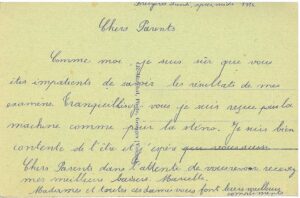 Chers Parents
Comme moi je suis sûr que vous
êtes impatients de savoir les résultats de mes
examens. Tranquillisez vous je suis reçue pour la
machine comme pour la sténo. Je suis bien
contente de l'être et j'espère que
Chers Parents dans l'attente de vous recevez
mes meilleurs baisers. Marcelle
Madame et toutes ces dames vous font leurs meilleurs
compliments